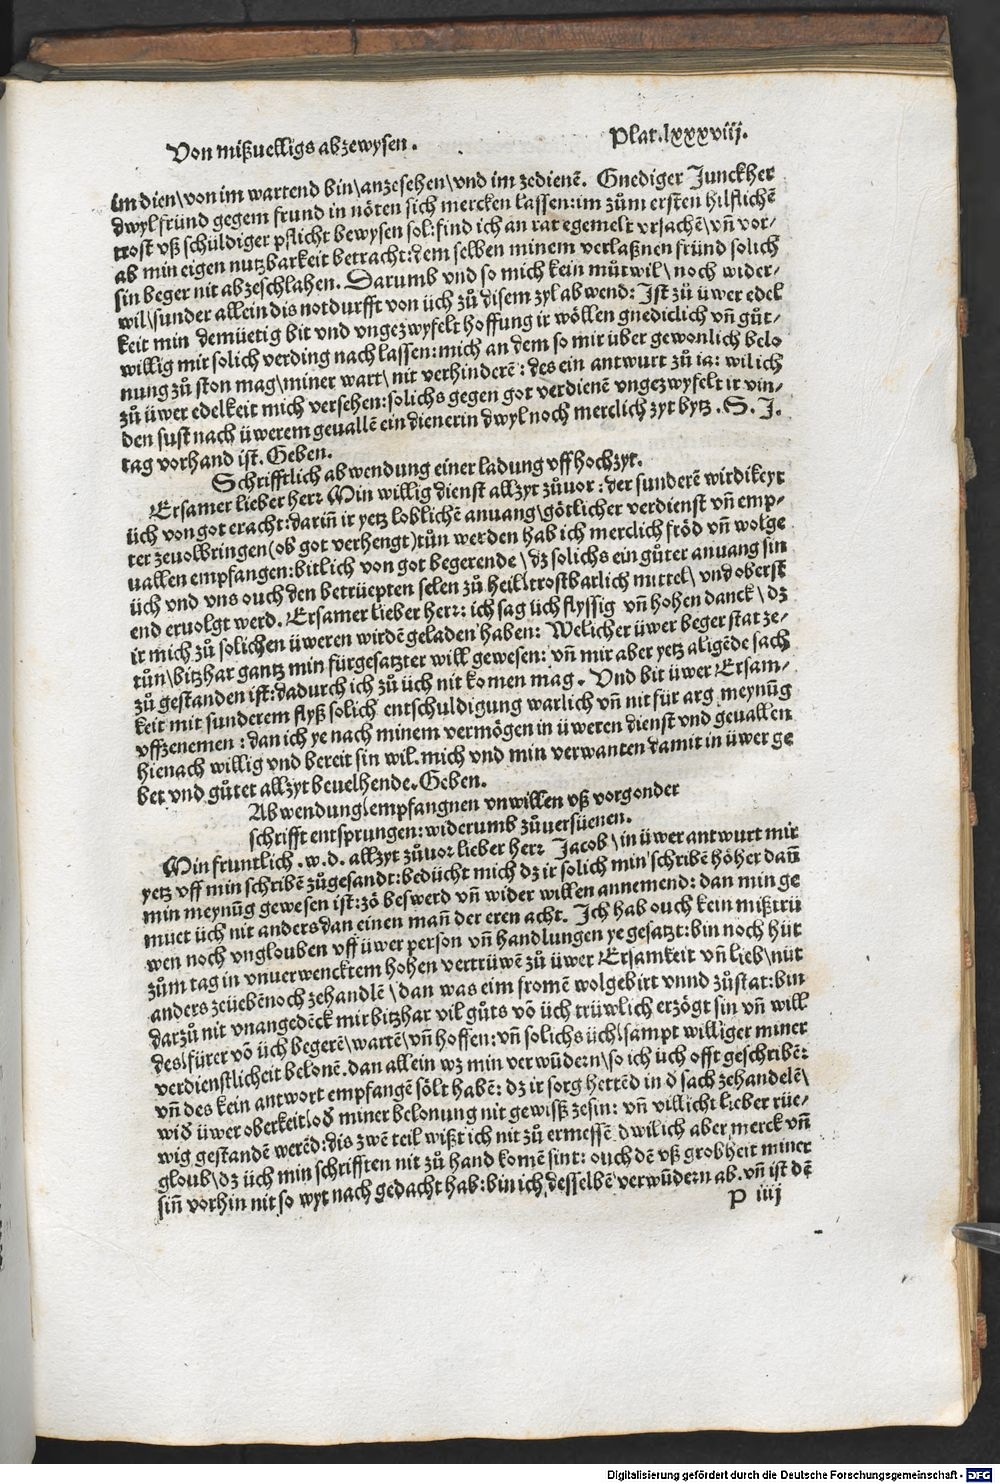 Von mißuelligs abzewysen.
Plat.lxxxviij.
im dien\von im wartend bin\anzesehen\vnd im zedienē. Gnediger Junckher
dwyl fründ gegem frund in nöten sich mercken lassen:im zům ersten hilflichē
trost vß schüldiger pflicht bewysen sol:find ich an rat egemelt vrsachē\vn̄ vor-
ab min eigen nutzbarkeit betracht:dem selben minem verlaßnen fründ solich
sin beger nit abzeschlahen. Darumb vnd so mich kein můtwil\noch wider-
wil\sunder allein dis notdurfft von üch zů disem zyl abwend: Ist zů üwer edel
keit min demüetig bit vnd vngezwyfelt hoffung ir wöllen gnediclich vn̄ gůt-
willig mir solich verding nach lassen:mich an dem so mir über gewonlich belo
nung zů ston mag\miner wart\nit verhinderē: des ein antwurt zů ia: wil ich
zů üwer edelkeit mich versehen:solichs gegen got verdienē vngezwyfelt ir vin-
den sust nach üwerem geuallē ein dienerin dwyl noch merclich zyt bytz .S.J.
tag vorhand ist. Geben.
Schrifftlich abwendung einer ladung vff hochzyt.
Ersamer lieber herr Min willig dienst allzyt zůuor: der sunderē wirdikeyt
üch von got eracht:darin̄ ir yetz loblichē anuang\götlicher verdienst vn̄ emp-
ter zeuolbringen(ob got verhengt)tůn werden hab ich merclich fröd vn̄ wolge
uallen empfangen:bitlich von got begerende\dz solichs ein gůter anuang sin
üch vnd vns ouch den betrüepten selen zů heil\trostbarlich mittel\vnd oberst
end eruolgt werd. Ersamer lieber herr: ich sag üch flyssig vn̄ hohen danck\dz
ir mich zů solichen üweren wirdē geladen haben: Welicher üwer beger stat ze-
tůn\bitzhar gantz min fürgesatzter will gewesen: vn̄ mir aber yetz aligēde sach
zů gestanden ist:dadurch ich zů üch nit komen mag. Vnd bit üwer Ersam-
keit mit sunderem flyß solich entschuldigung warlich vn̄ nit für arg meynūg
vffzenemen: dan ich ye nach minem vermögen in üweren dienst vnd geuallen
hienach willig vnd bereit sin wil.mich vnd min verwanten damit in üwer ge
bet vnd gůtet allzyt beuelhende. Geben.
Abwendung\empfangnen vnwillen vß vorgonder
schrifft entsprungen:widerumb zůuersüenen.
Min fruntlich .w.d. allzyt zůuor lieber herr Jacob\in üwer antwurt mir
yetz vff min schribē zůgesandt:bedücht mich dz ir solich min schribē höher dan̄
min meynūg gewesen ist:zō beswerd vn̄ wider willen annemend: dan min ge
müet üch nit anders dan einen man̄ der eren acht. Ich hab ouch kein mißtrü
wen noch vnglouben vff üwer person vn̄ handlungen ye gesatzt:bin noch hüt
zům tag in vnuerwencktem hohen vertrüwē zů üwer Ersamkeit vn̄ lieb\nüt
anders zeüebē noch zehandlē\dan was eim fromē wolgebirt vnnd zůstat:bin
darzů nit vnangedēck mir bitzhar vil gůts vō üch trüwlich erzögt sin vn̄ will
des\fürer vō üch begerē\wartē\vn̄ hoffen:vn̄ solichs üch\sampt williger miner
verdienstlicheit belonē.dan allein wz min verwūdern\so ich üch offt geschribē:
vn̄ des kein antwort empfangē sölt habē: dz ir sorg hettēd in d̄ sach zehandelē\
wid̄ üwer oberkeit\od̄ miner belonung nit gewißz zesin: vn̄ villicht lieber rüe-
wig gestandē werēd:dis zwē teil wißt ich nit zů ermessē. dwil ich aber merck vn̄
gloub\dz üch min schrifften nit zů hand komē sint: ouch dē vß grobheit miner
sin̄ vorhin nit so wyt nach gedacht hab:bin ich desselbē verwūdern ab.vn̄ ist dē
P iiij
Digitalisierung gefördert durch die Deutsche Forschungsgemeinschaft - DFG